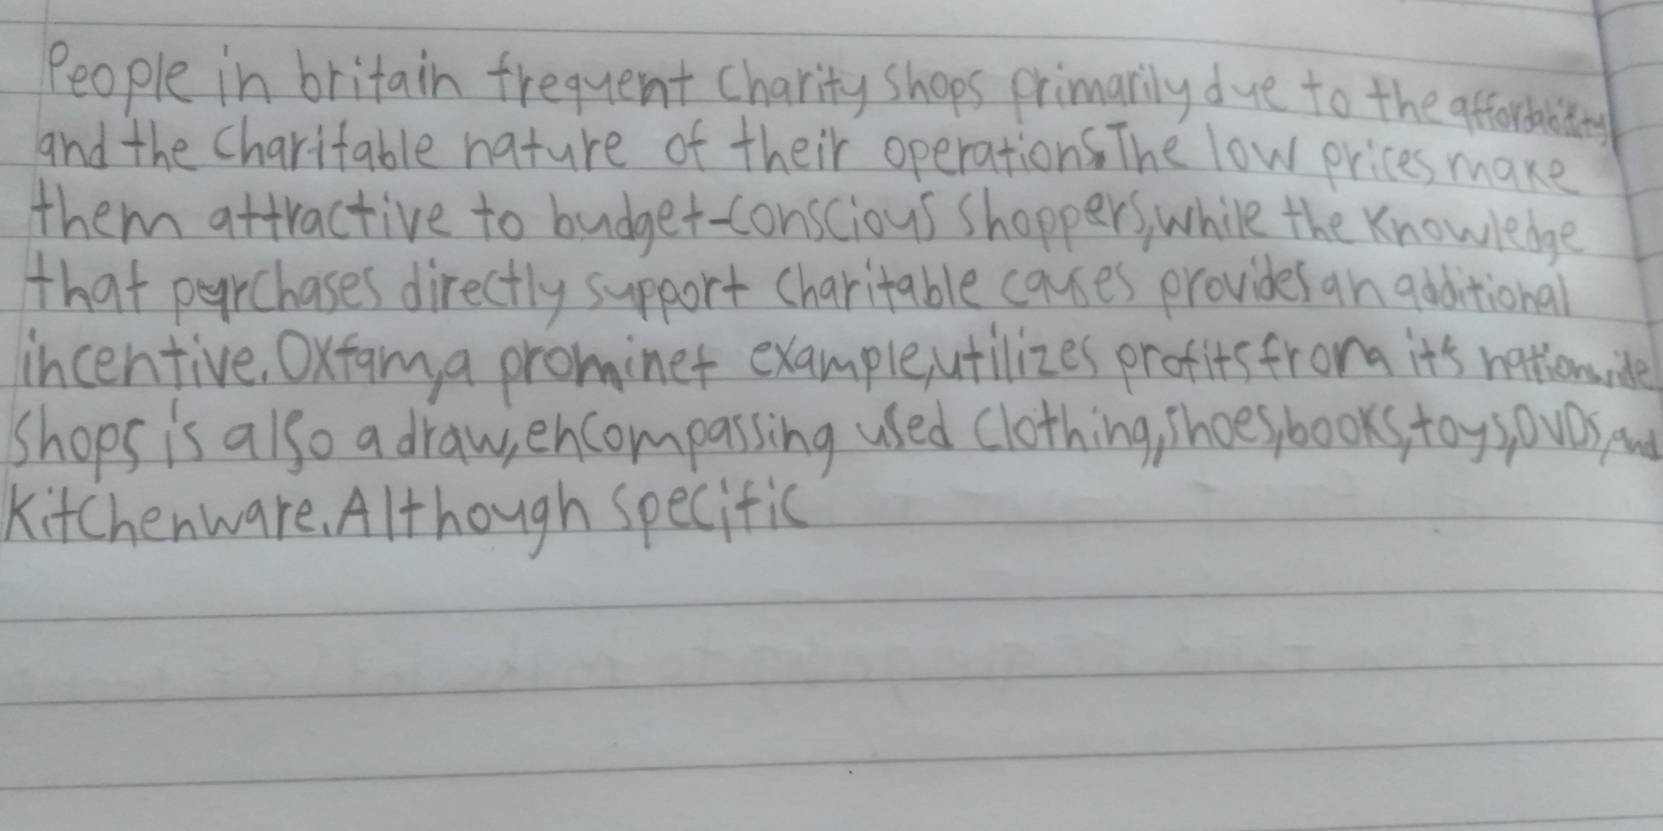 People in britain frequent charity shops primarily due to the affordability
and the charitable nature of their operations. The low prices make
them attractive to budget-conscious shoppers, while the knowledge
that purchases directly support charitable causes provides an additional
incentive. Oxfam, a prominet example, utilizes profits from it's nationwide
shops is also a draw, encompassing used clothing, shoes, books, toys, DVDs, and
kitchenware. Although specific